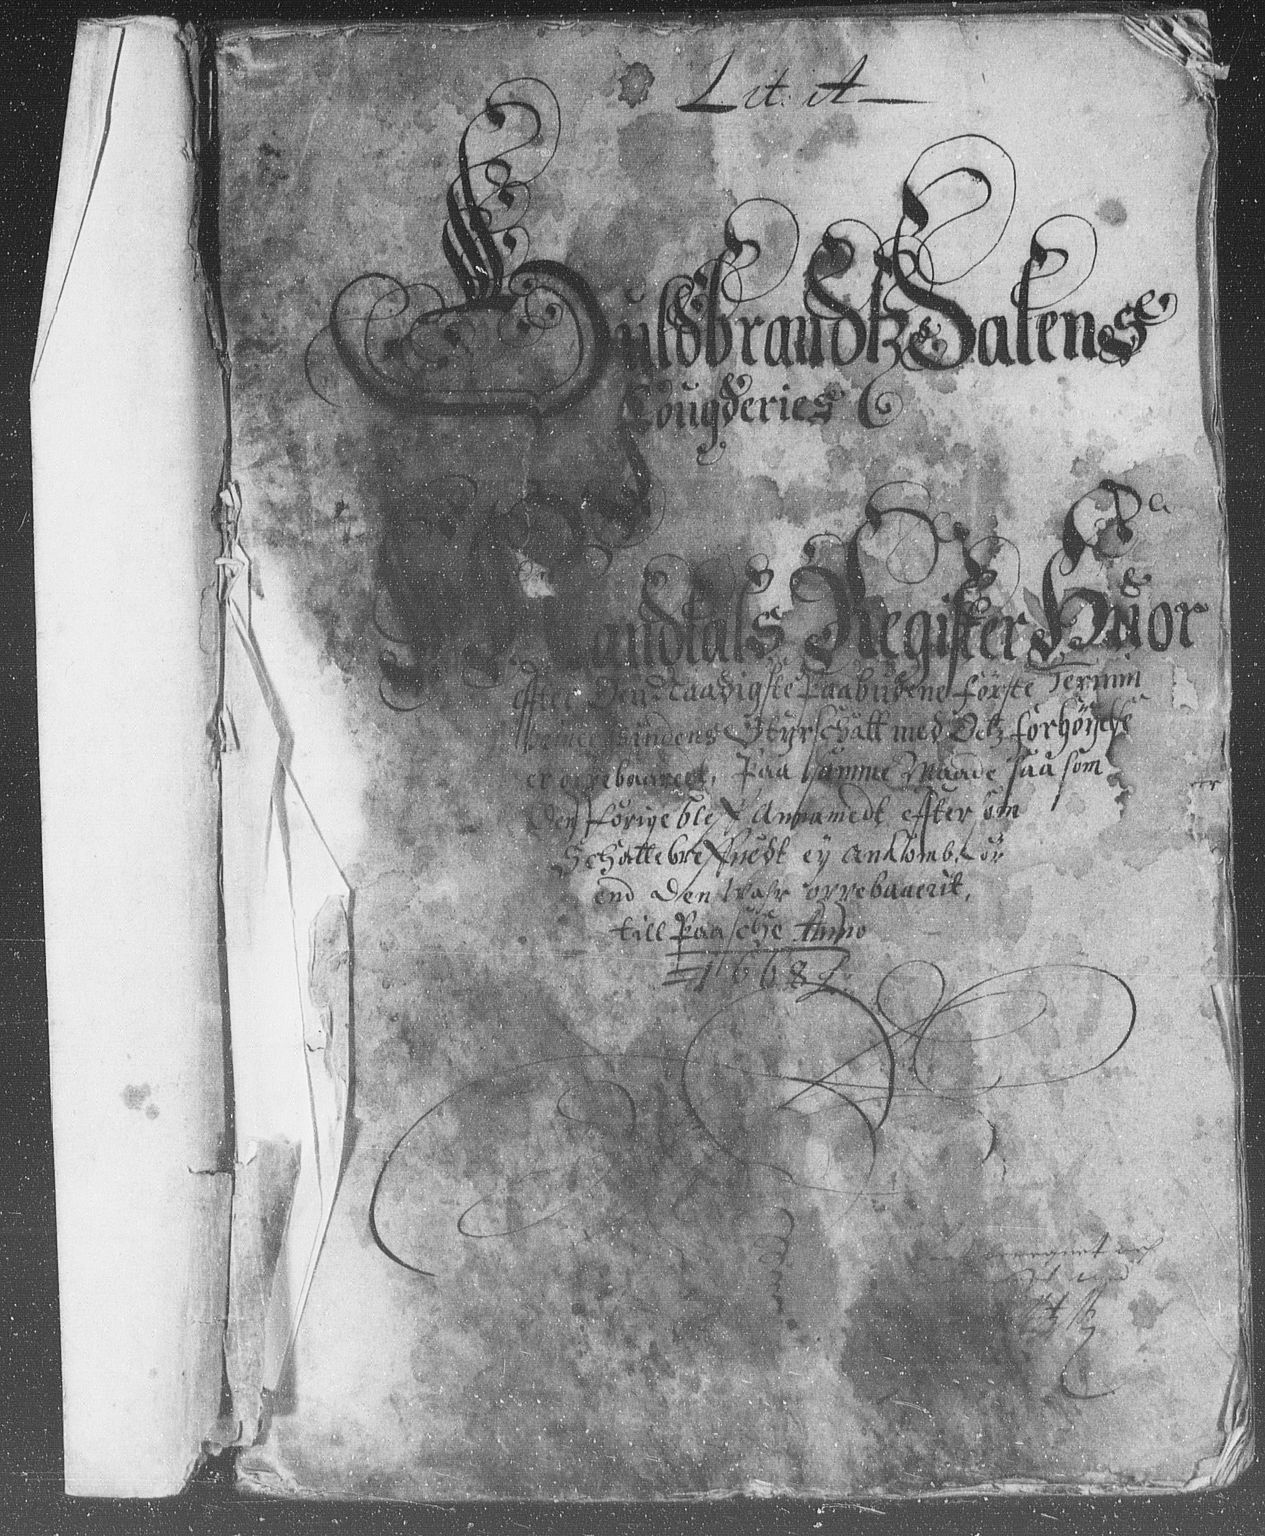 Lit: A
Guldbrandtz Dalens
Fougderies
Pa
Mandtals Register Huor
effter Den Naadigste Paabudene förste Termin
Princessindens Styrschatt med Detz förhöyelse
er oprebaaret, Paa samme Maade saa som
Den förige blef Annamedt, efter som
Schattebrefuedt ey ankomb, för
end Den War oprebaaerit,
till Paasche Anno
1668